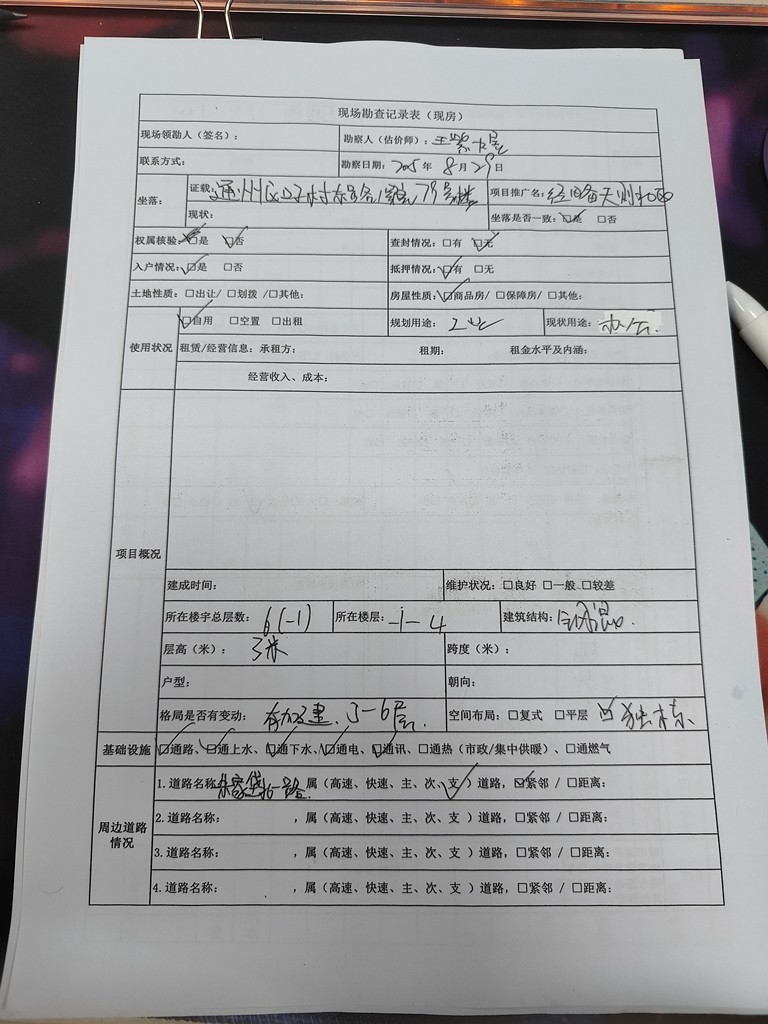 现场勘查记录表（现房）
现场领勘人（签名）： 勘察人（估价师）：
联系方式： 勘察日期：2025年 8月29日
坐落： 证载：通州区 79号楼 项目推广名：
现状： 坐落是否一致：☑是 □否
权属核验：□是 ☑否 查封情况：□有 ☑无
入户情况：☑是 □否 抵押情况：☑有 □无
土地性质：□出让/ □划拨 /□其他： 房屋性质：☑商品房/ □保障房/ □其他：
使用状况 ☑自用 □空置 □出租 规划用途：工业 现状用途：办公.
租赁/经营信息：承租方： 租期： 租金水平及内涵：
经营收入、成本：
项目概况
建成时间： 维护状况：□良好 □一般 □较差
所在楼宇总层数：6(-1) 所在楼层：-1-4 建筑结构：钢混.
层高（米）：3米 跨度（米）：
户型： 朝向：
格局是否有变动：有加建、5-6层. 空间布局：□复式 □平层 ☑独栋.
基础设施 ☑通路、☑通上水、☑通下水、☑通电、☑通讯、□通热（市政/集中供暖）、□通燃气
周边道路情况
1.道路名称 ，属（高速、快速、主、次、支✓）道路，☑紧邻 / □距离：
2.道路名称： ，属（高速、快速、主、次、支 ）道路，□紧邻 / □距离：
3.道路名称： ，属（高速、快速、主、次、支 ）道路，□紧邻 / □距离：
4.道路名称： ，属（高速、快速、主、次、支 ）道路，□紧邻 / □距离：